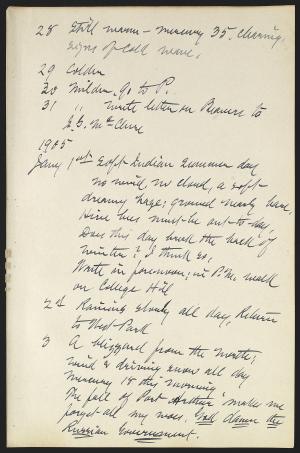 28 Still warm - mercury 35, clearing.
Signs of cold wave.
29 Colder
30 Milder, go to P.
31 " write letter on Beavers to
S.S. McClure
1905
Jany 1st Soft Indian Summer day
no wind, no cloud, a soft
dreamy haze; ground nearly bare,
Hive bees must be out to-day,
Does this day break the back of
winter? I think so,
Write in forenoon; in P.M. walk
on College Hill
2d Raining slowly all day, Return
to West Park
3 A blizzard from the north;
wind & driving snow all day
mercury 18 this morning
The fall of Port Arthur makes me
forget all my woes. God damn the
Russian Government.